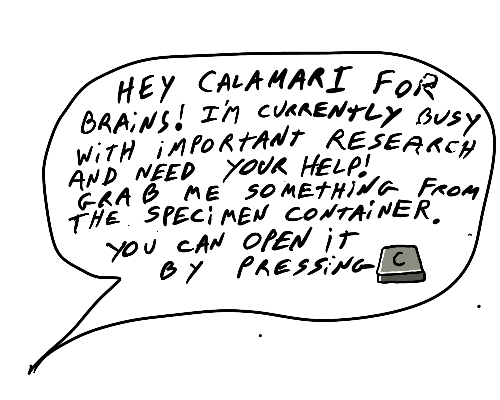 HEY CALAMARI FOR
BRAINS! I'M CURRENTLY BUSY
WITH IMPORTANT RESEARCH
AND NEED YOUR HELP!
GRAB ME SOMETHING FROM
THE SPECIMEN CONTAINER.
YOU CAN OPEN IT
BY PRESSING C